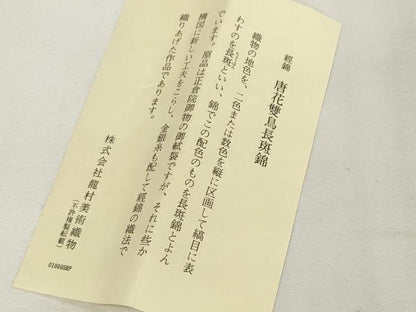 經錦 唐花雙鳥長斑錦
織物の地色を、二色または数色を縦に区画して縞目に表
わすのを長斑といい、錦でこの配色のものを長斑錦とよん
でいます。原品は正倉院御物の御軾裂ですが、それに些か
構図に新しい工夫をこらし、金銀糸も配して經錦の織法で
織りあげた作品であります。
株式会社龍村美術織物
(不許複製転載)